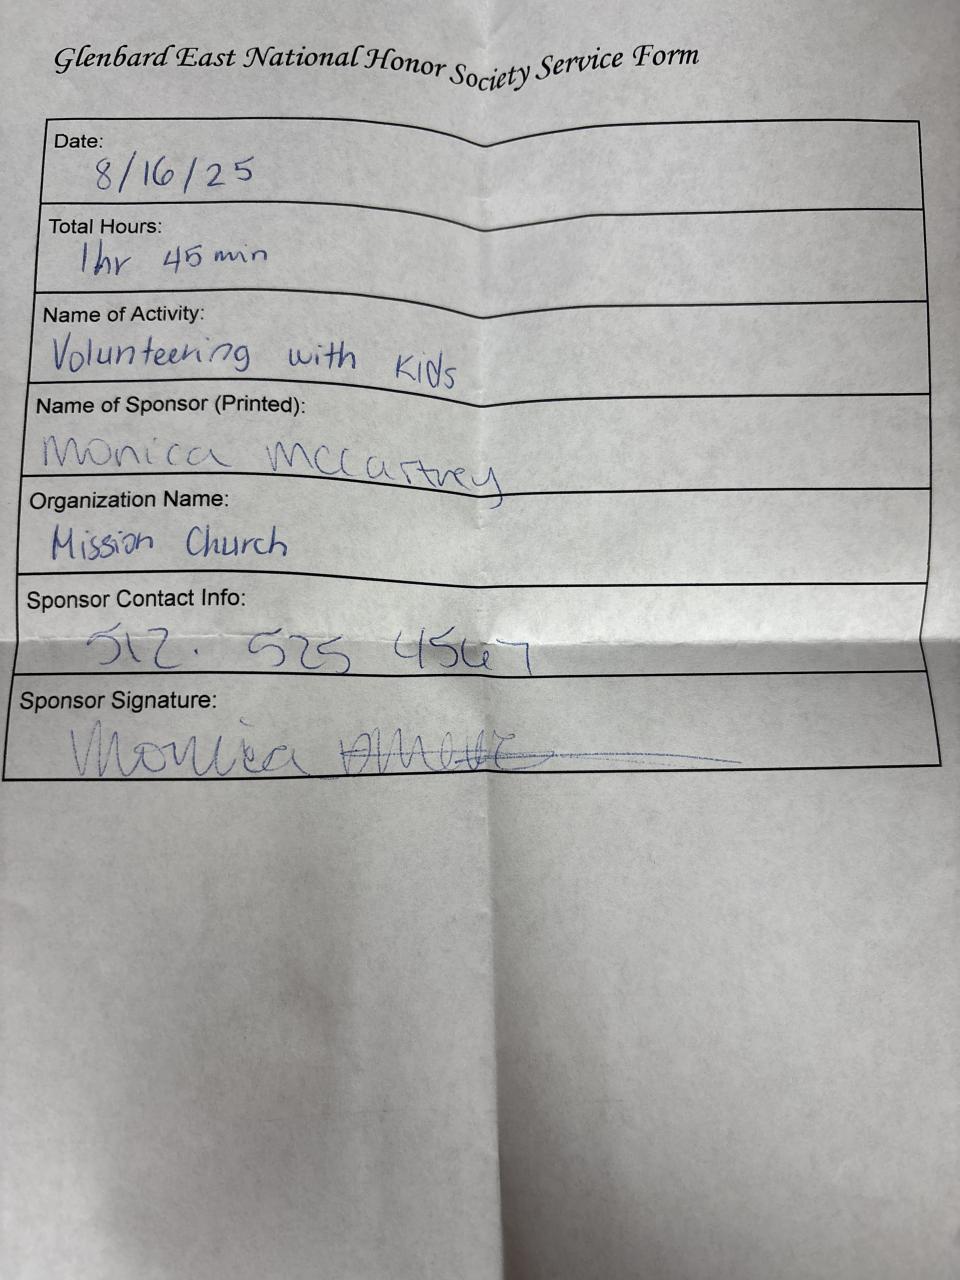 Glenbard East National Honor Society Service Form
Date:
8/16/25
Total Hours:
1hr 45 min
Name of Activity:
Volunteering with Kids
Name of Sponsor (Printed):
Monica McCartney
Organization Name:
Mission Church
Sponsor Contact Info:
512. 525 4567
Sponsor Signature:
Monica